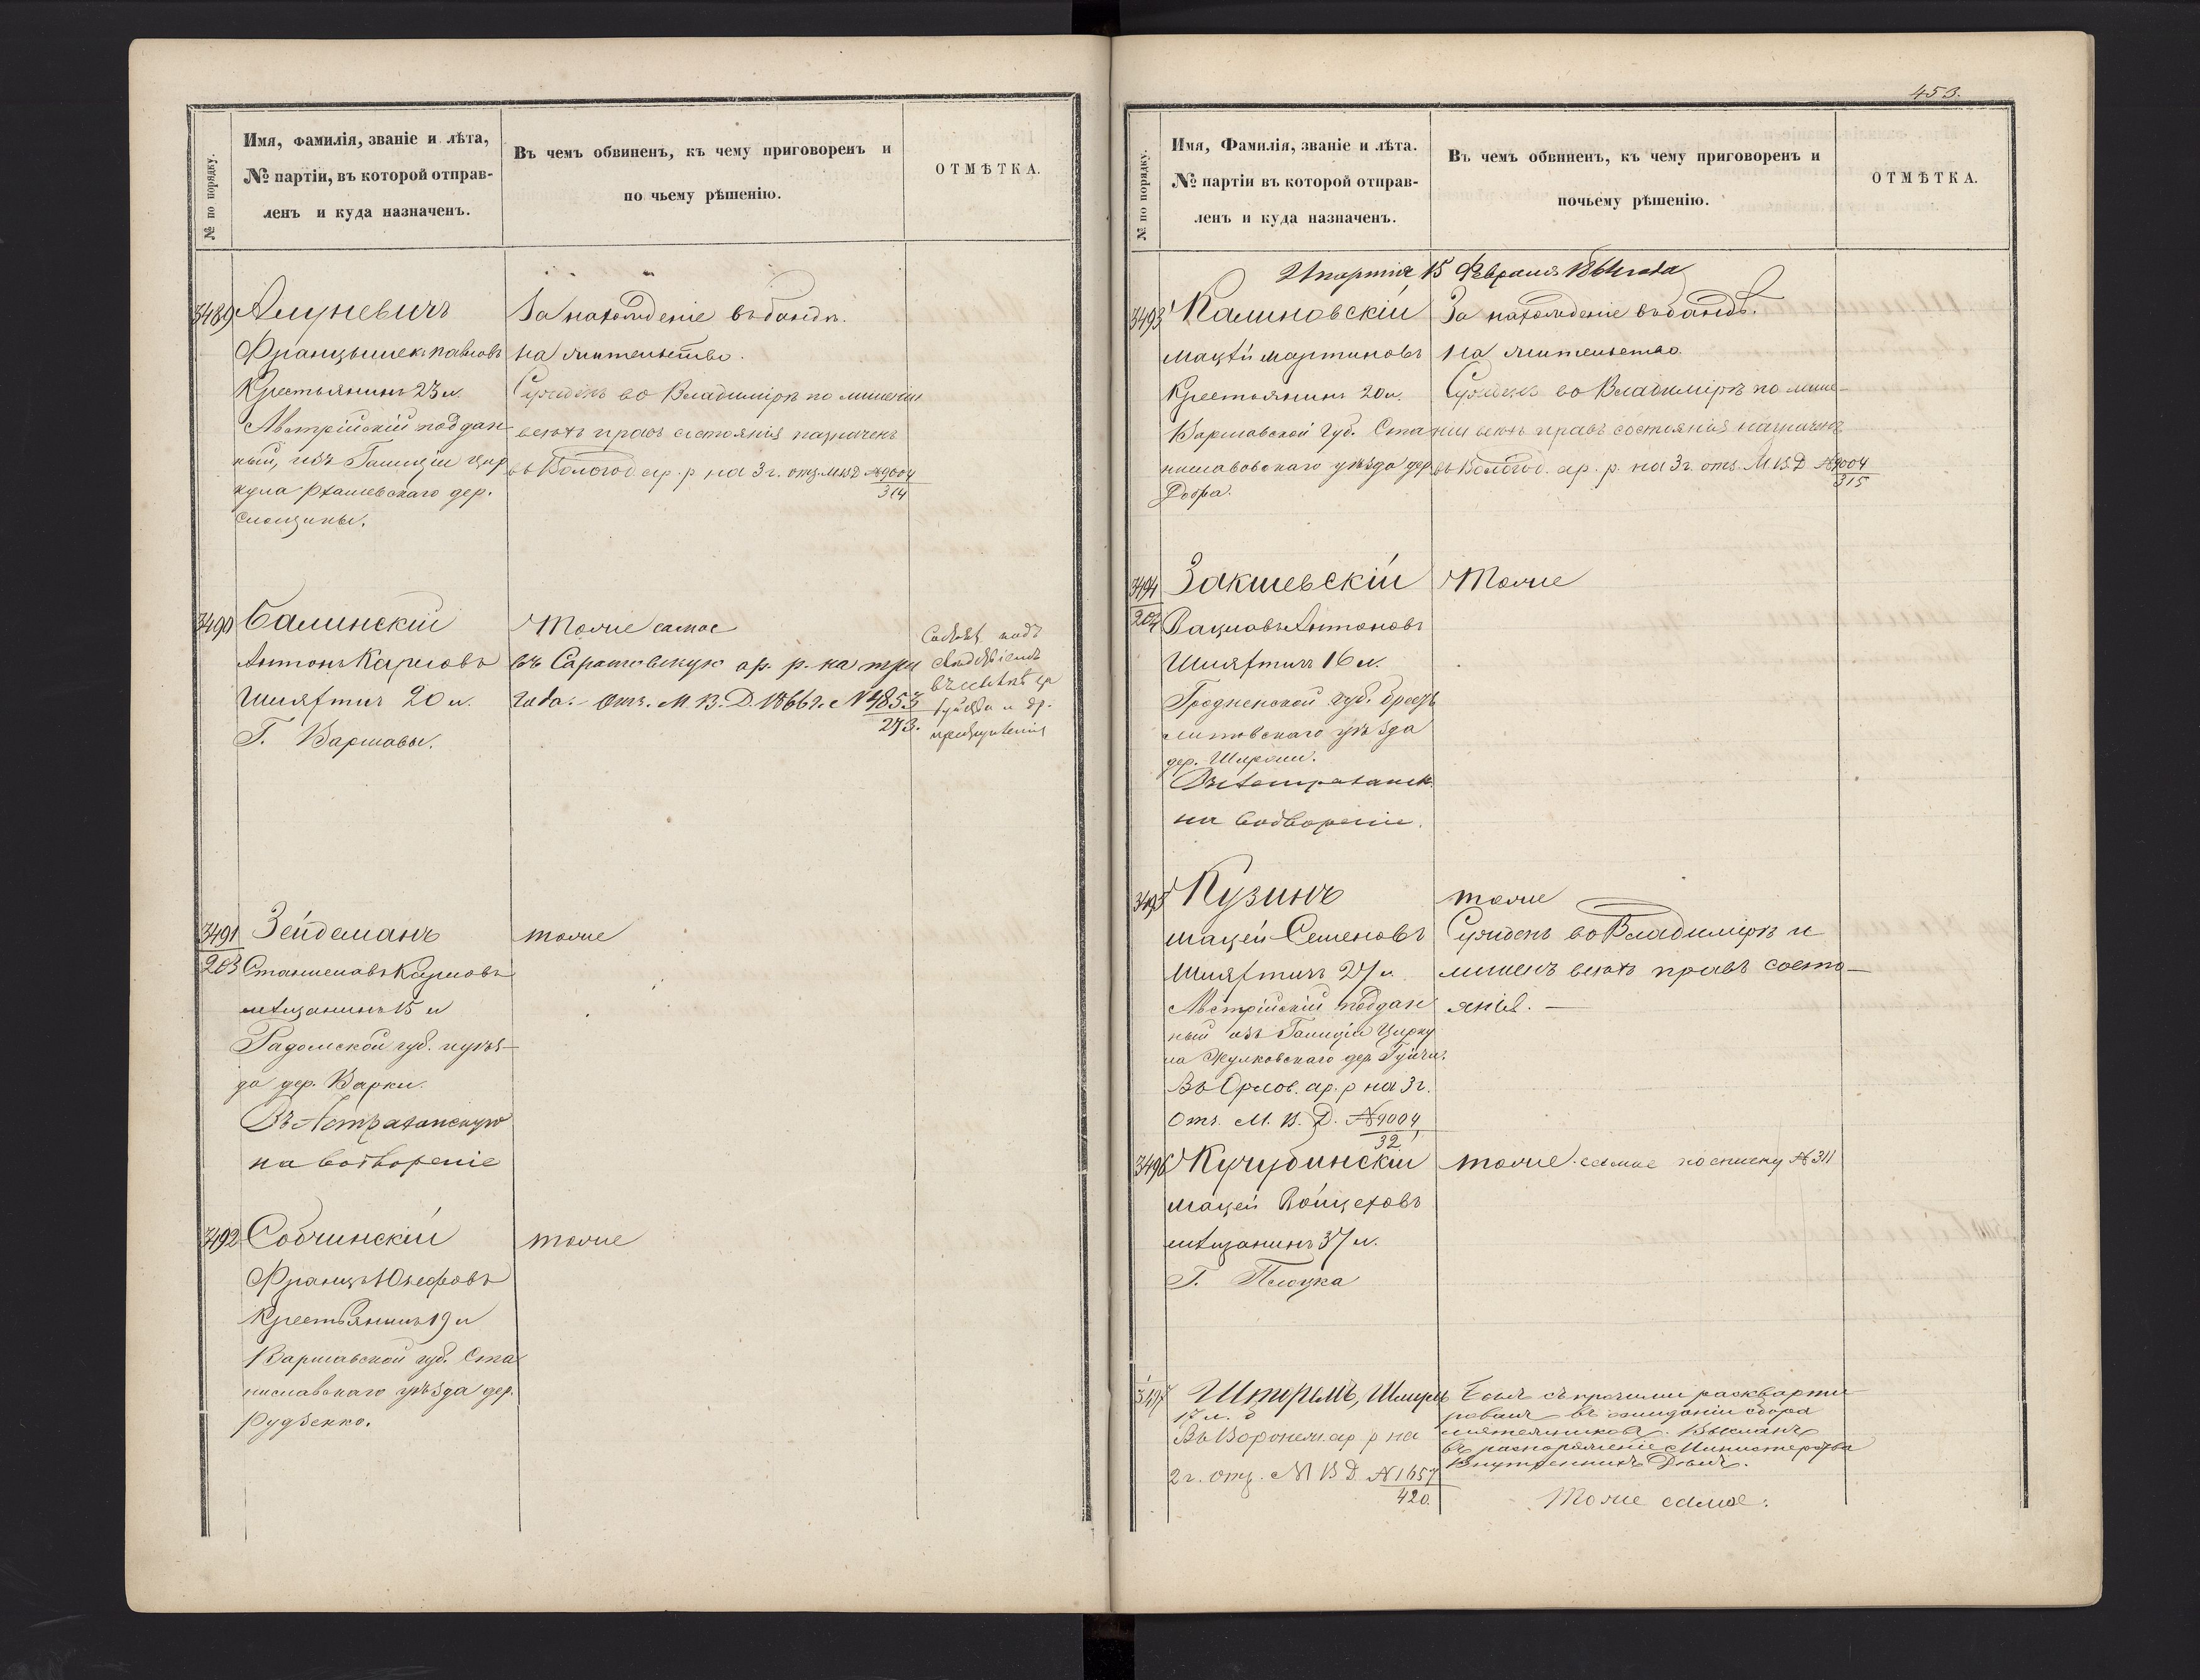 № по порядку.
Имя, фамилія, званіе и лѣта,
№ партіи, въ которой отправ-
ленъ и куда назначенъ.
Въ чемъ обвиненъ, къ чему приговоренъ и
по чьему рѣшенію.
ОТМѢТКА.
3489
Алуневичъ
Францышекъ Павловъ
Крестьянинъ 23 л.
Австрійскій поддан
ный, изъ Галиціи цир
кула Рхашевскаго дер.
За нахожденіе въ бандѣ.
на жительство.
Сужденъ во Владимірѣ по лишеніи
всѣхъ правъ состоянія назначенъ
въ Вологод ар. р на 3 г. отз. МВД №9004
314
3490
Балинскій
Антонъ Карловъ
Шляхтич 20 л.
Г. Варшавы.
Тоже самое
въ Саратовскую ар. р. на три
года. Отз. М. В. Д. 1866 г. №4853
293.
3491
203
Зейдеманъ
Станиславъ Карловъ
мѣщанинъ 15 л
Радомской губ. и уѣз-
да дер. Варки.
Въ Астраханскую
на водвореніе
тоже
3492
Собчинскій
Францъ Юзефовъ
Крестьянинъ 19 л
Варшавской губ. Ста
ниславскаго уѣзда дер.
Рудзенко.
тоже
453.
№ по порядку.
Имя, Фамилія, званіе и лѣта.
№ партіи въ которой отправ-
ленъ и куда назначенъ.
Въ чемъ обвиненъ, къ чему приговоренъ и
почьему рѣшенію.
ОТМѢТКА.
партія 15 Февраля 1864 года
3493
Калиновскій
Мацѣй Мартиновъ
Крестьянинъ 20 л.
Варшавской Губ. Ста
ниславовскаго уѣзда дер
Добра.
За нахожденіе въ бандѣ.
на жительство.
Сужденъ во Владимірѣ по лише-
ніи всѣхъ правъ состоянія назначенъ
въ Вологод. ар. р. на 3 г. отз. М.В.Д №9004
315
3494
204
Закшевскій
Вацлавъ Антоновъ
Шляхтич 16 л.
Гродненской губ. Брест
литовскаго уѣзда
дер.
Въ Астраханск.
на водвореніе.
Тоже
3495
Кузинъ
Мацей Семеновъ
Шляхтич 27 л.
Австрійскій поддан
ный изъ Галиціи Цирку
ла Жулковскаго дер.
Въ Орлов. ар. р на 3 г.
Отз. М. В. Д. №9004
32
тоже
Сужденъ во Владимірѣ и
лишенъ всѣхъ правъ состо-
янія. —
3496
Кучубинскій
Мацей Войцеховъ
мѣщанинъ 37 л.
Г. Плоцка
тоже самое по списку №311
3497
Штормъ,
17 л.
Въ Воронеж. ар р на
2 г. отз. М В Д №1657
420.
Былъ съ прочими расквартиро
рованъ въ ожиданіи сбора
мятежниковъ. Высланъ
въ распоряженіе Министерства
Внутреннихъ Дѣлъ.
Тоже самое.